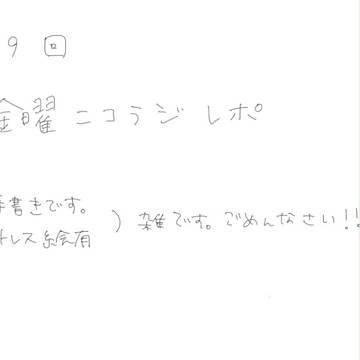 9回
金曜ニコラジレポ
手書きです。
トレス絵有
）雑です。ごめんなさい！！